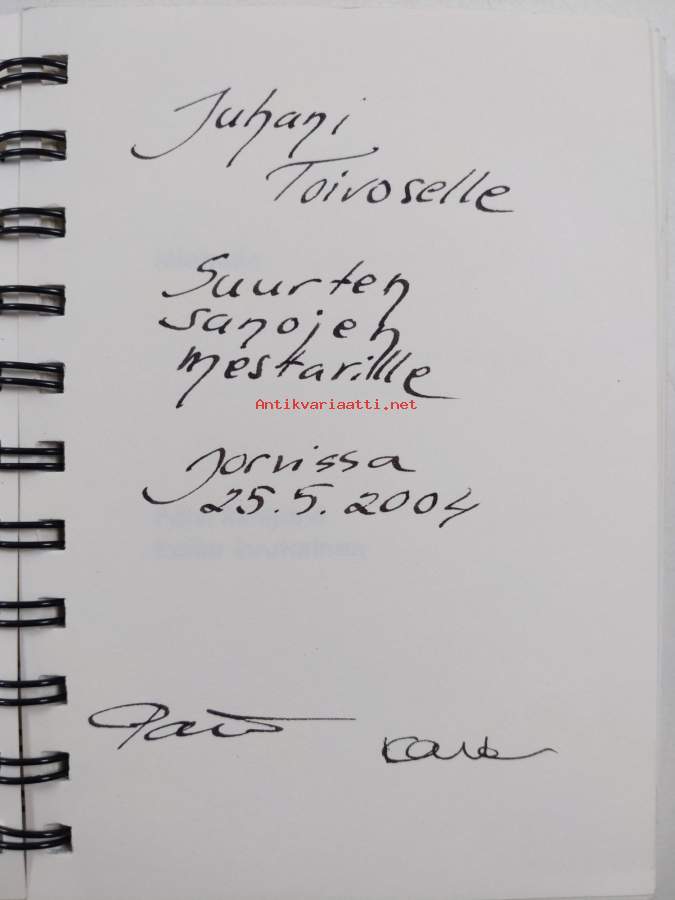 Juhani
Toivoselle
Suurten
sanojen
mestarille
Antikvariaatti.net
Jorvissa
25.5.2004